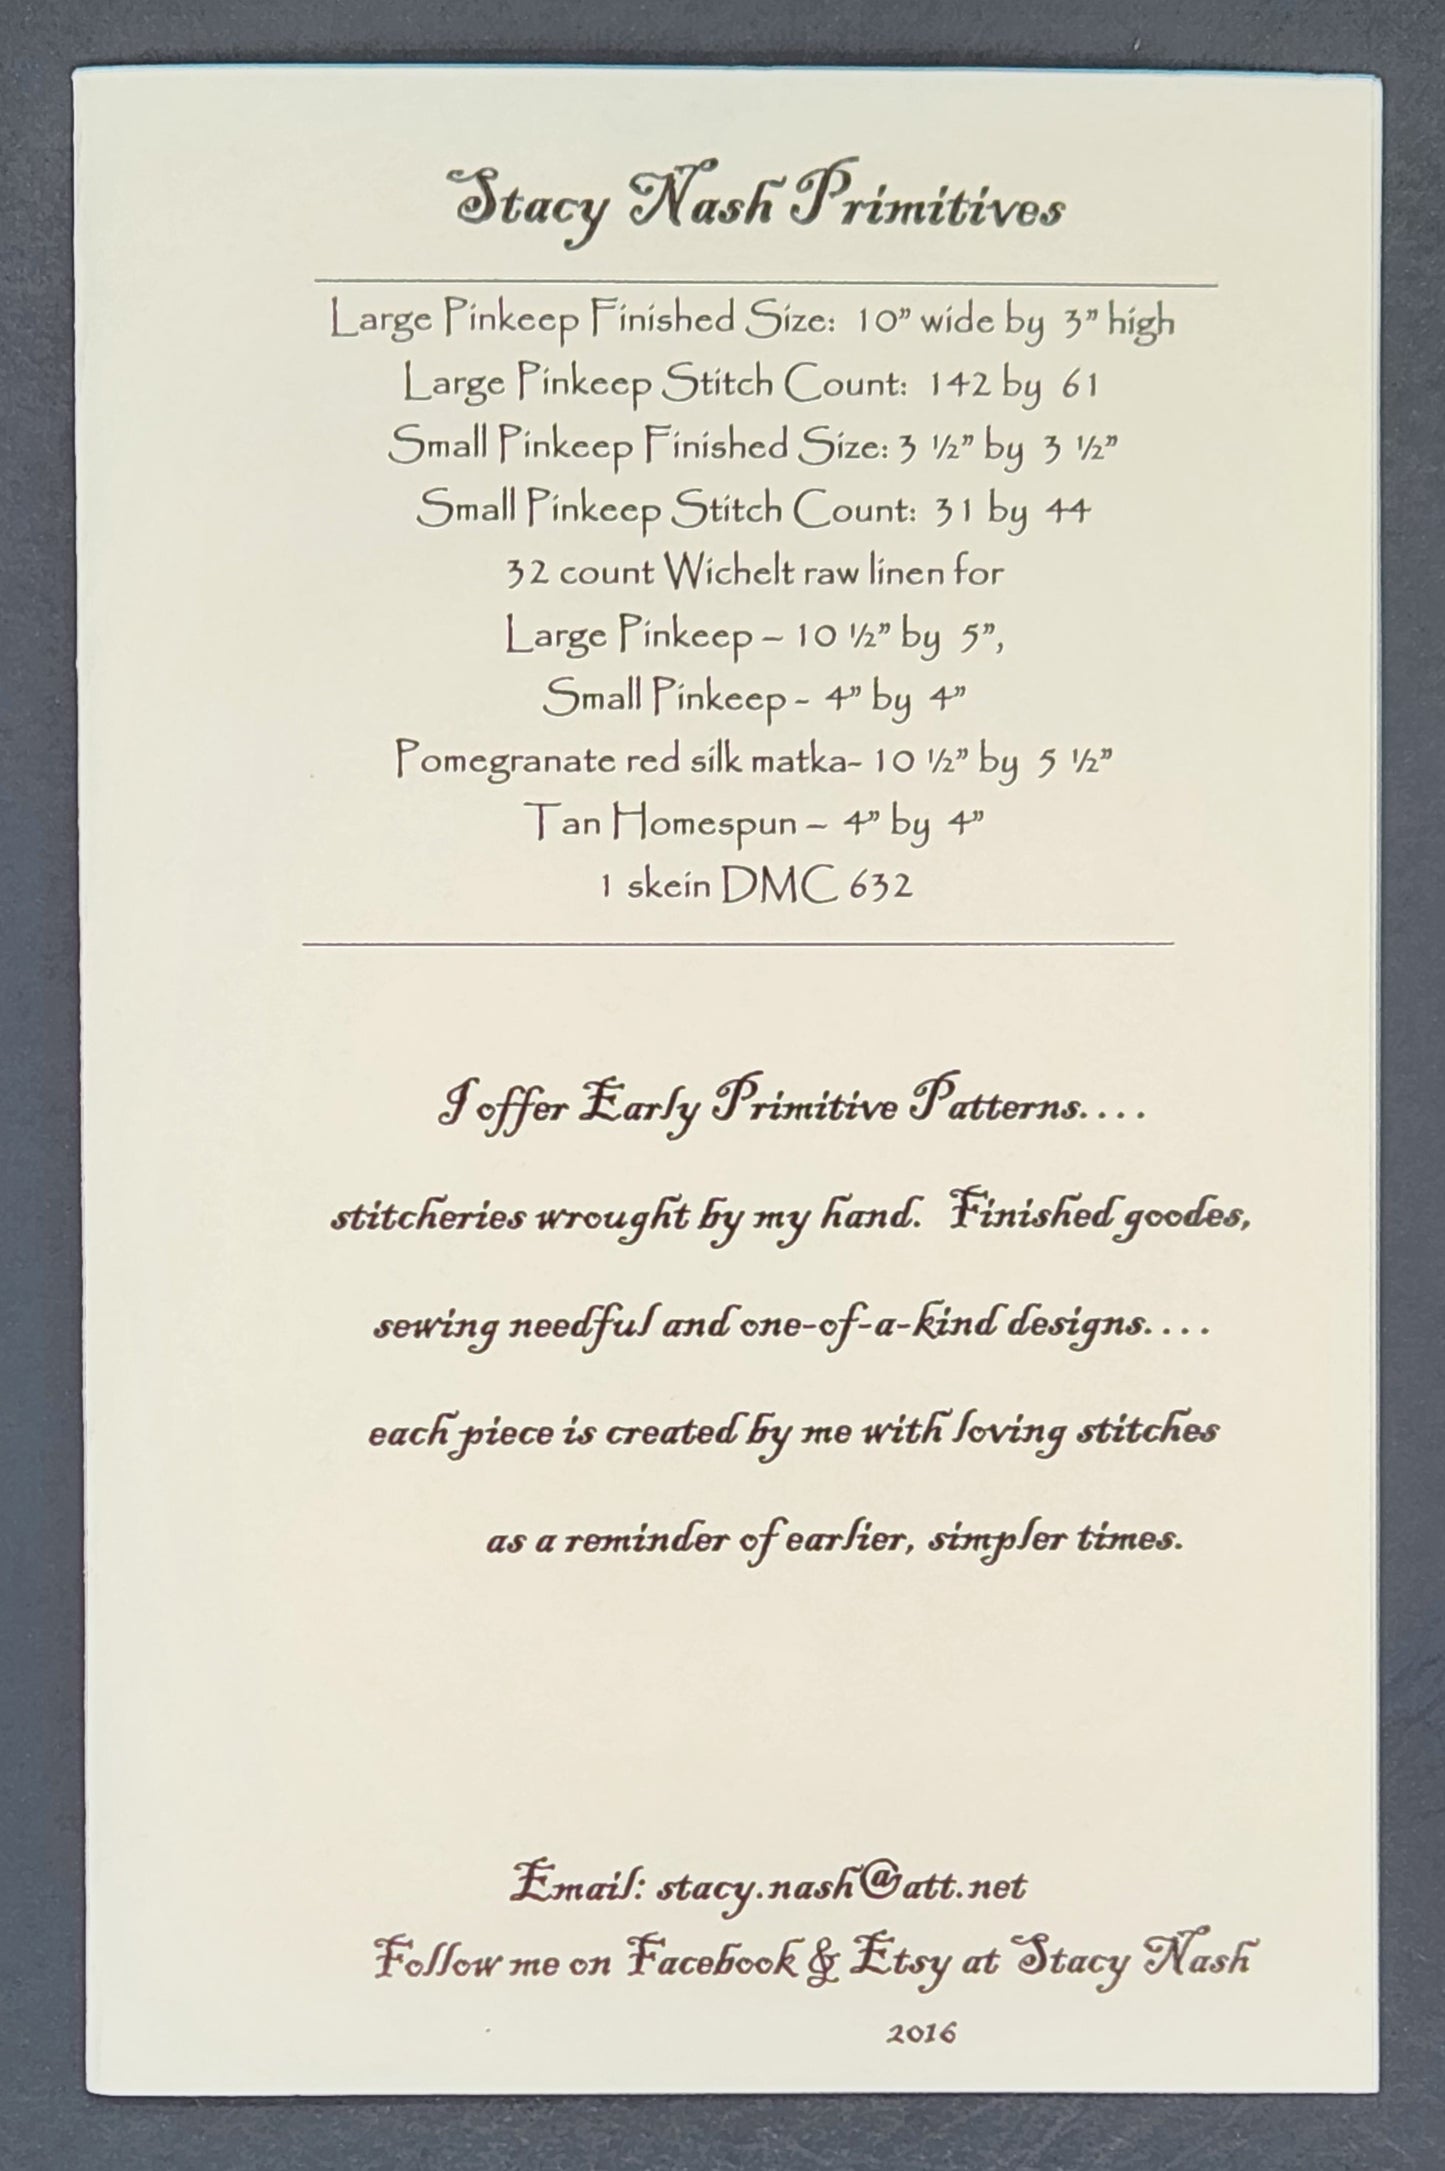 Stacy Nash Primitives
Large Pinkeep Finished Size: 10” wide by 3” high
Large Pinkeep Stitch Count: 142 by 61
Small Pinkeep Finished Size: 3 ½” by 3 ½”
Small Pinkeep Stitch Count: 31 by 44
32 count Wichelt raw linen for
Large Pinkeep – 10 ½” by 5”,
Small Pinkeep - 4” by 4”
Pomegranate red silk matka- 10 ½” by 5 ½”
Tan Homespun – 4” by 4”
1 skein DMC 632
I offer Early Primitive Patterns....
stitcheries wrought by my hand. Finished goodes,
sewing needful and one-of-a-kind designs....
each piece is created by me with loving stitches
as a reminder of earlier, simpler times.
Email: stacy.nash@att.net
Follow me on Facebook & Etsy at Stacy Nash
2016